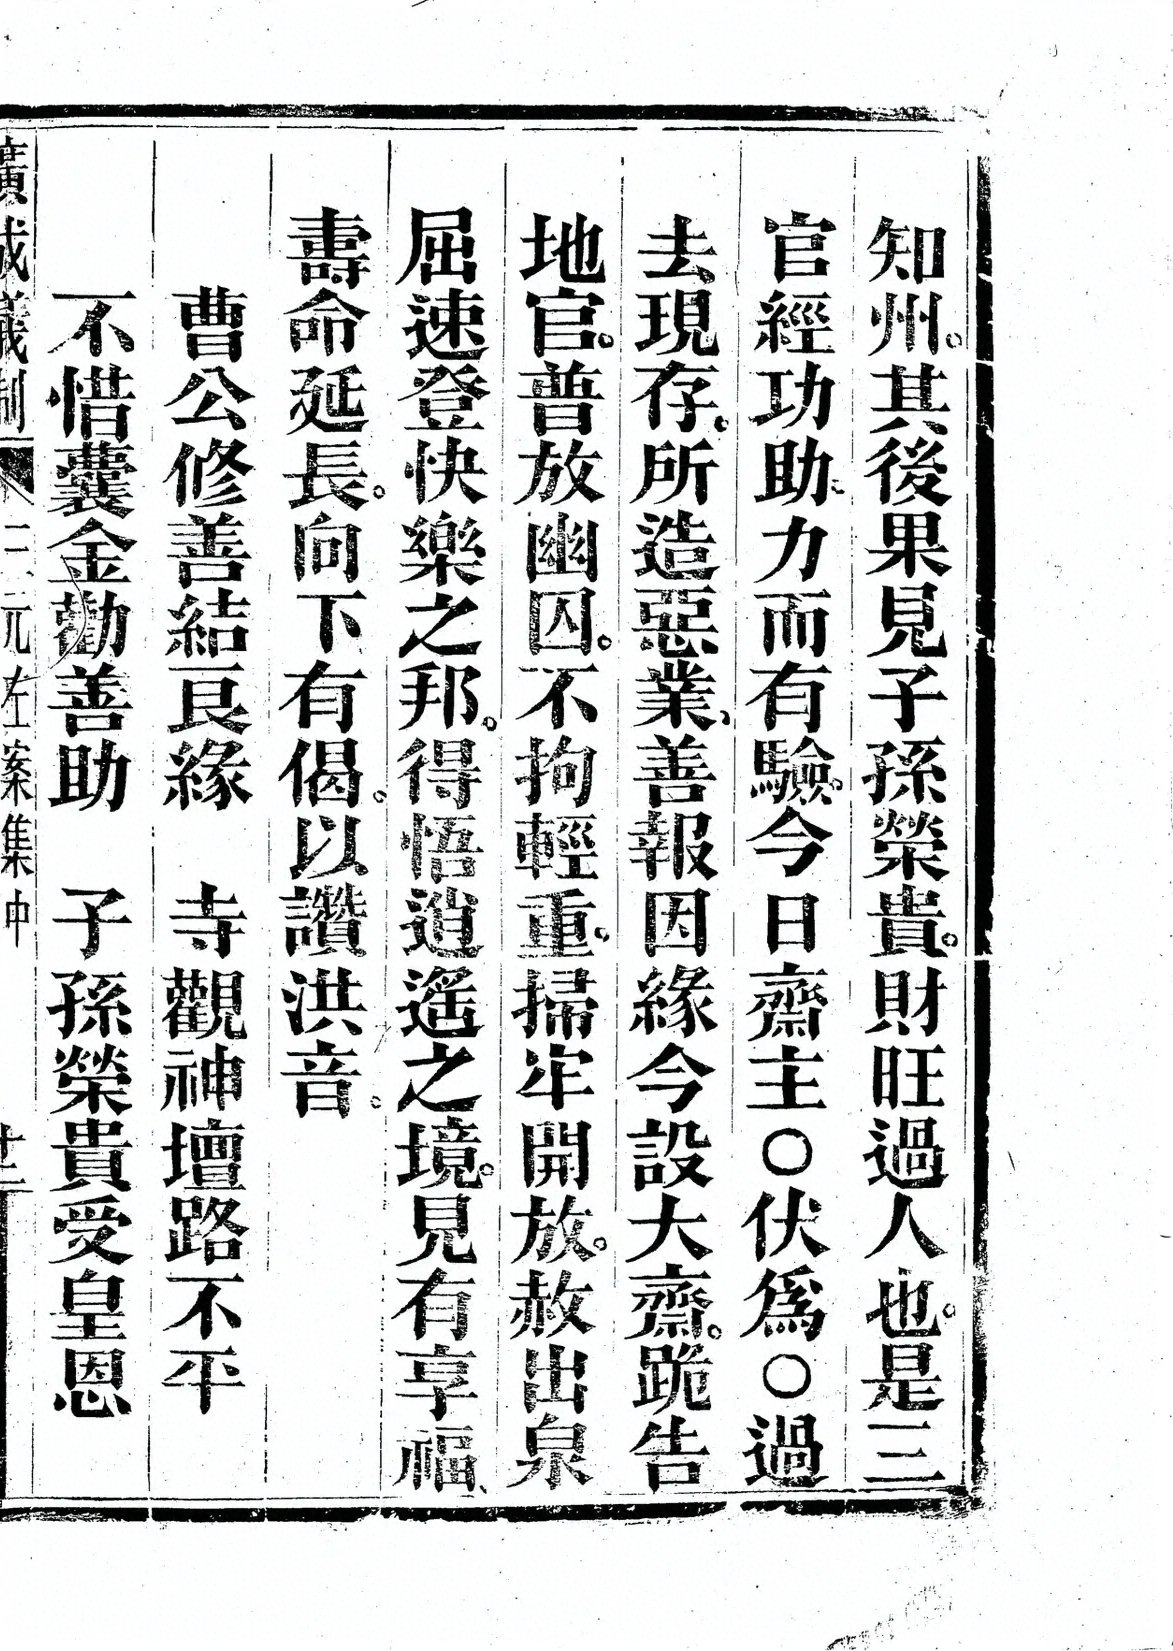 知州。其後果見子孫榮貴。財旺過人也。是三
官經功助力而有驗。今日齋主○伏爲○過
去現存。所造惡業、善報因緣今設大齋。跪告
地官。普放幽囚。不拘輕重。掃牢開放。赦出泉
屈速登快樂之邦。得悟逍遙之境。見有享福、
壽命延長。向下有偈。以讚洪音。
曹公修善結良緣　寺觀神壇路不平
不惜囊金勸善助　子孫榮貴受皇恩
廣成儀制　三元左案集中　廿三